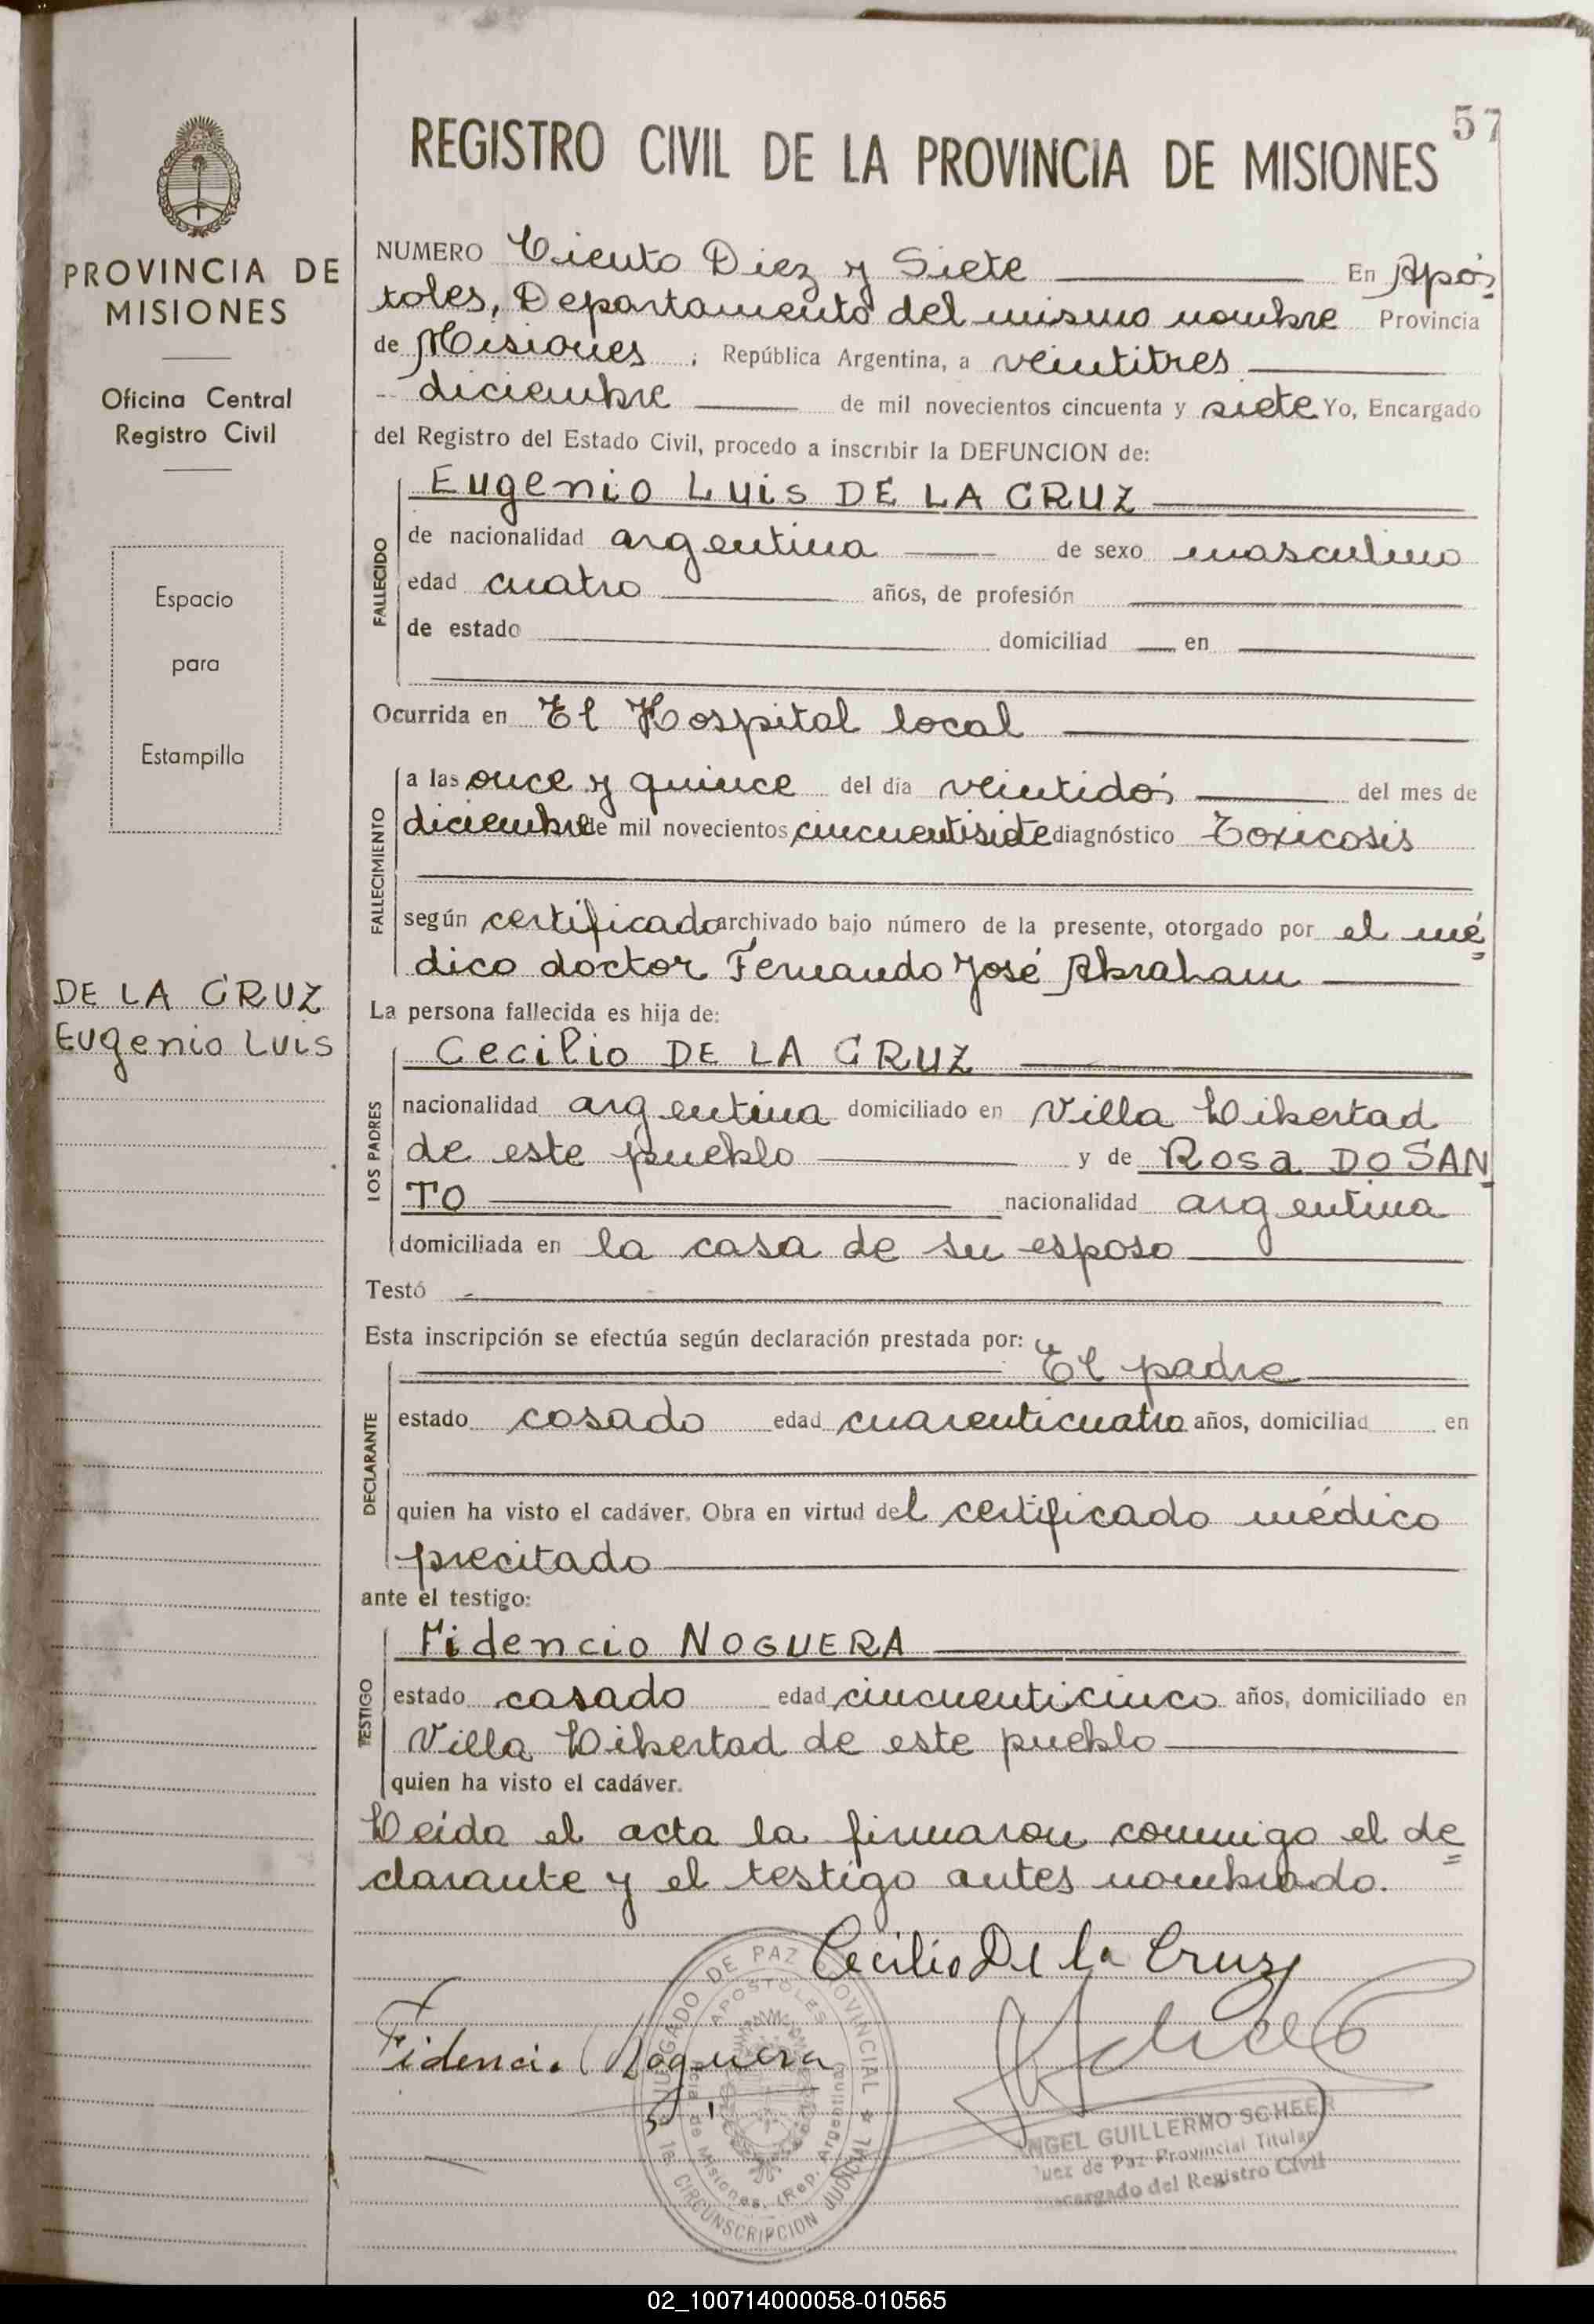 57
REGISTRO CIVIL DE LA PROVINCIA DE MISIONES
PROVINCIA DE
MISIONES
Oficina Central
Registro Civil
Espacio
para
Estampilla
DE LA CRUZ
Eugenio Luis
NUMERO Ciento Diez y Siete En Após
toles, Departamento del mismo nombre Provincia
de Misiones, República Argentina, a veintitres
diciembre de mil novecientos cincuenta y siete Yo, Encargado
del Registro del Estado Civil, procedo a inscribir la DEFUNCION de:
Eugenio Luis DE LA CRUZ
FALLECIDO
de nacionalidad argentina de sexo masculino
edad cuatro años, de profesión
de estado domiciliad en
Ocurrida en El Hospital local
FALLECIMIENTO
a las once y quince del día veintidós del mes de
diciembre de mil novecientos cincuentisiete diagnóstico Toxicosis
según certificado archivado bajo número de la presente, otorgado por el mé
dico doctor Fernando José Abraham
La persona fallecida es hija de:
Cecilio DE LA CRUZ
LOS PADRES
nacionalidad argentina domiciliado en Villa Libertad
de este pueblo y de Rosa DO SAN
TO nacionalidad argentina
domiciliada en la casa de su esposo
Testó
Esta inscripción se efectúa según declaración prestada por:
El padre
DECLARANTE
estado casado edad cuarenticuatro años, domiciliad en
quien ha visto el cadáver. Obra en virtud del certificado médico
precitado
ante el testigo:
Fidencio NOGUERA
TESTIGO
estado casado edad cincuenticinco años, domiciliado en
Villa Libertad de este pueblo
quien ha visto el cadáver.
Leída el acta la firmaron conmigo el de
clarante y el testigo antes nombrado.
Cecilio De la Cruz
Fidencio Noguera
JUZGADO DE PAZ PROVINCIAL
APOSTOLES
Pcia. de Misiones. (Rep. Argentina)
1a. CIRCUNSCRIPCION JUDICIAL
ANGEL GUILLERMO SCHEER
Juez de Paz Provincial Titular
Encargado del Registro Civil
02_100714000058-010565